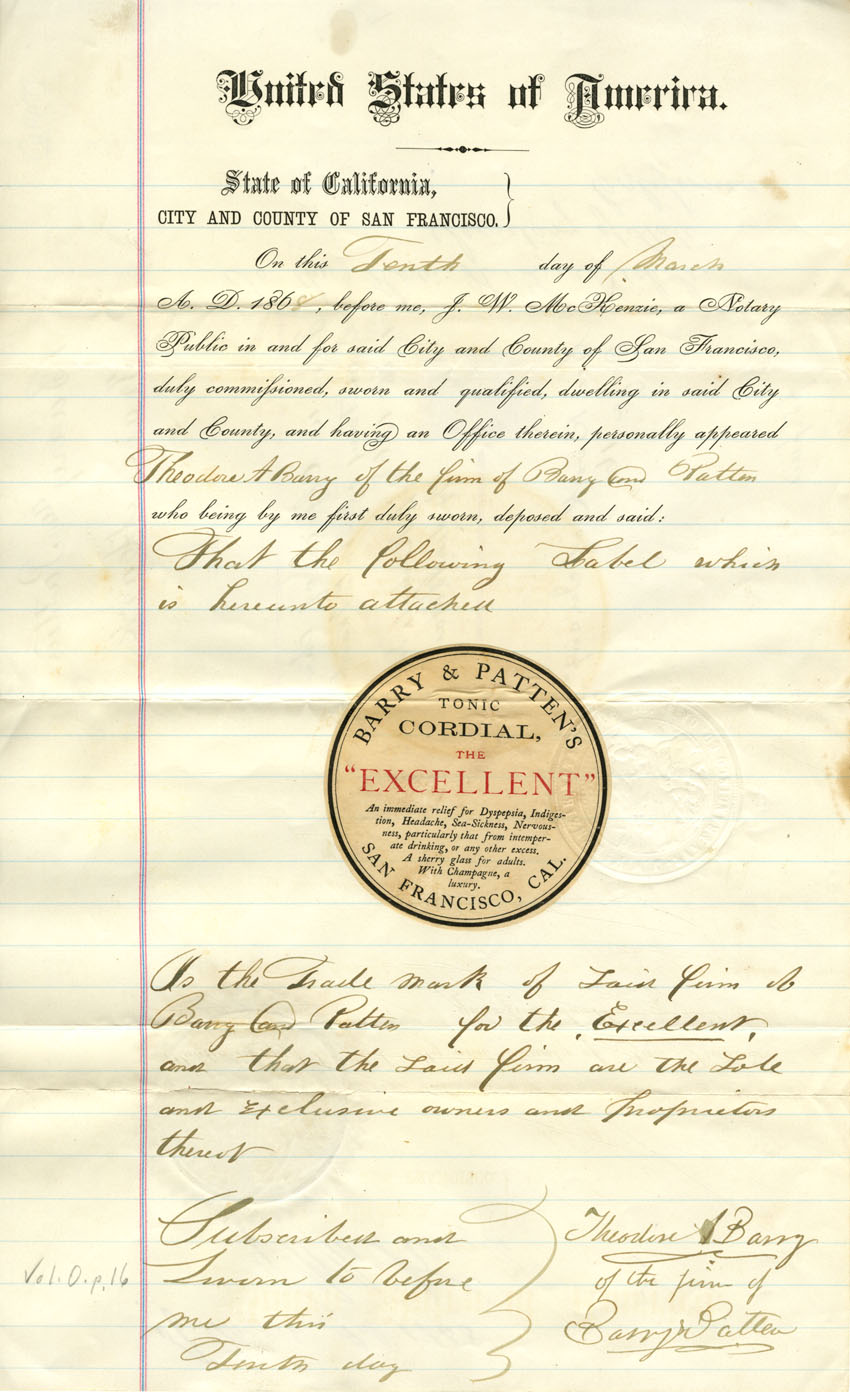 United States of America.
State of California,
CITY AND COUNTY OF SAN FRANCISCO.
On this Tenth day of March
A. D. 1868, before me, J. W. McKenzie, a Notary
Public in and for said City and County of San Francisco,
duly commissioned, sworn and qualified, dwelling in said City
and County, and having an Office therein, personally appeared
Theodore A Barry of the firm of Barry and Patten
who being by me first duly sworn, deposed and said:
That the following Label which
is hereunto attached
BARRY & PATTEN'S
TONIC
CORDIAL,
THE
"EXCELLENT"
An immediate relief for Dyspepsia, Indiges-
tion, Headache, Sea-Sickness, Nervous-
ness, particularly that from intemper-
ate drinking, or any other excess.
A sherry glass for adults.
With Champagne, a
luxury.
SAN FRANCISCO, CAL.
Is the Trade mark of said firm of
Barry and Patten for the "Excellent",
and that the said firm are the Sole
and Exclusive owners and Proprietors
thereof
Subscribed and
Sworn to before
me this
Tenth day
Theodore A Barry
of the firm of
Barry & Patten
Vol. O. p. 16